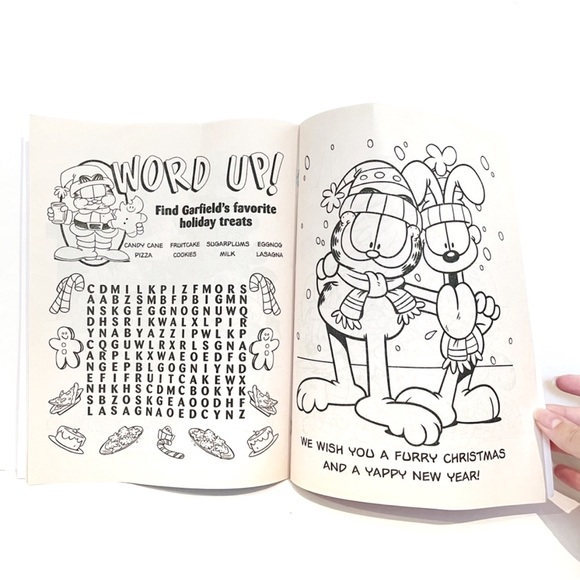 WORD UP!
Find Garfield's favorite
holiday treats
CANDY CANE FRUITCAKE SUGARPLUMS EGGNOG
PIZZA COOKIES MILK LASAGNA
C D M I L K P I Z F M O R S
A A B Z S M B F P B I G M N
N S K G E G G N O G N U W Q
D H S R I K W A L X L P I R
Y N A B Y A Z Z I P W L K P
C Q G U W L R X R L S G N A
A R P L K X W A E O E D F G
N G E P B L G O G N I Y N D
E F I F R U I T C A K E W X
N H K H S C D M C B O K Y K
S B Z O S K G E A O O D H F
L A S A G N A O E D C Y N Z
WE WISH YOU A FURRY CHRISTMAS
AND A YAPPY NEW YEAR!